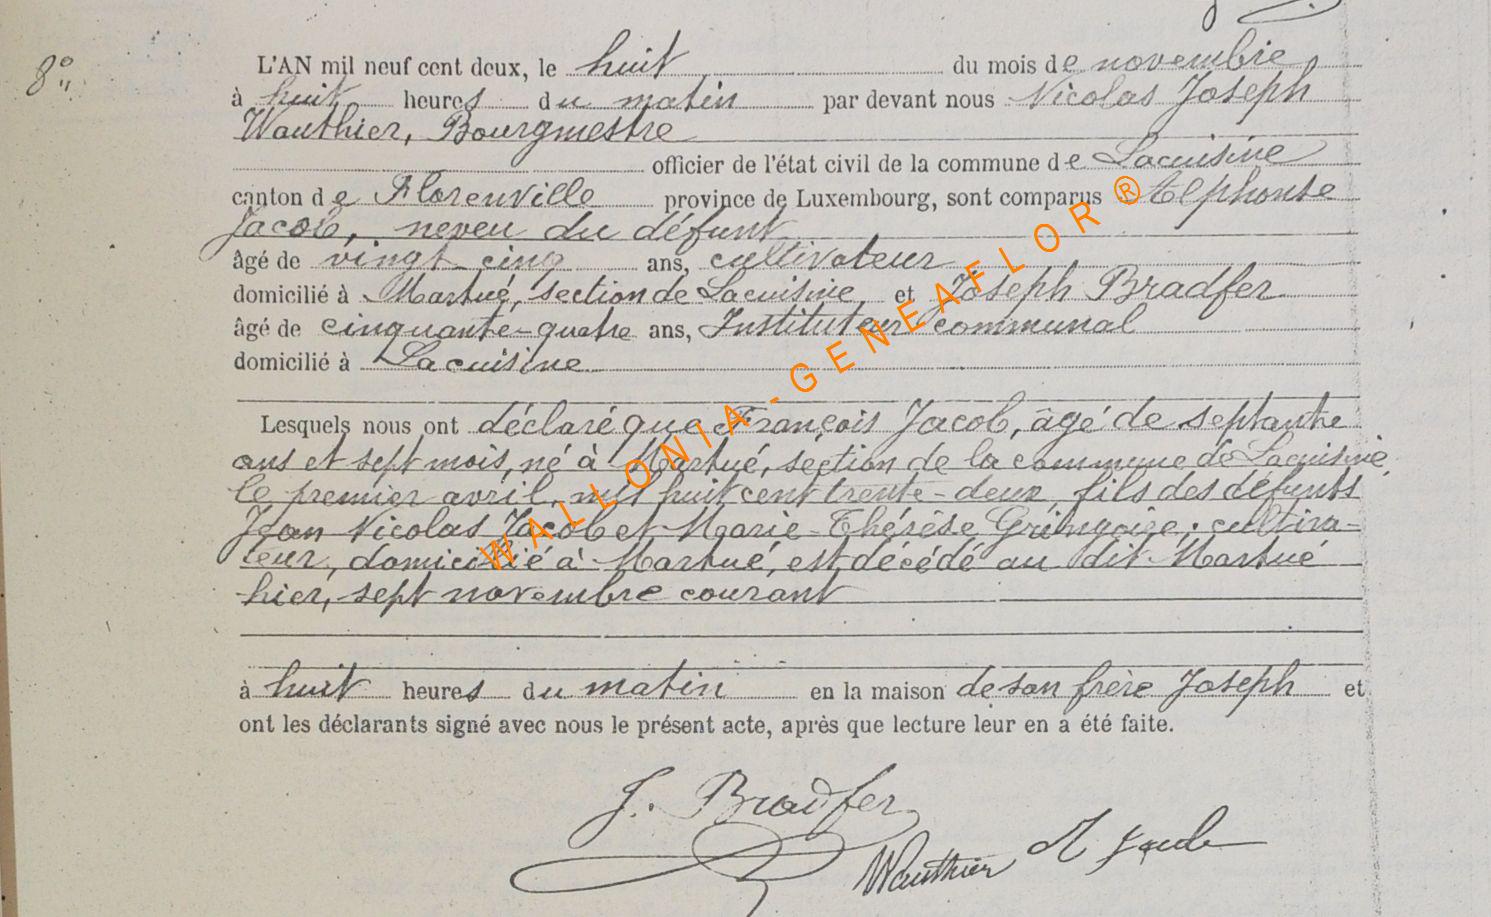 8°
L'AN mil neuf cent deux, le huit du mois de novembre
à huit heures du matin par devant nous Nicolas Joseph
Wauthier, Bourgmestre
officier de l'état civil de la commune de Lacuisine
canton de Florenville province de Luxembourg, sont comparus Alphonse
Jacob, neveu du défunt
âgé de vingt cinq ans, cultivateur
domicilié à Martué, section de Lacuisine, et Joseph Bradfer
âgé de cinquante-quatre ans, Instituteur communal
domicilié à Lacuisine
Lesquels nous ont déclaré que François Jacob, âgé de septante
ans et sept mois, né à Martué, section de la commune de Lacuisine,
le premier avril mil huit cent trente-deux, fils des défunts
Jean Nicolas Jacob et Marie-Thérèse Gringoire, cultiva-
teur, domicilié à Martué, est décédé au dit Martué
hier, sept novembre courant
à huit heures du matin en la maison de son frère Joseph et
ont les déclarants signé avec nous le présent acte, après que lecture leur en a été faite.
J. Bradfer
Wauthier A Jacob
WALLONIA-GENEAFLOR®